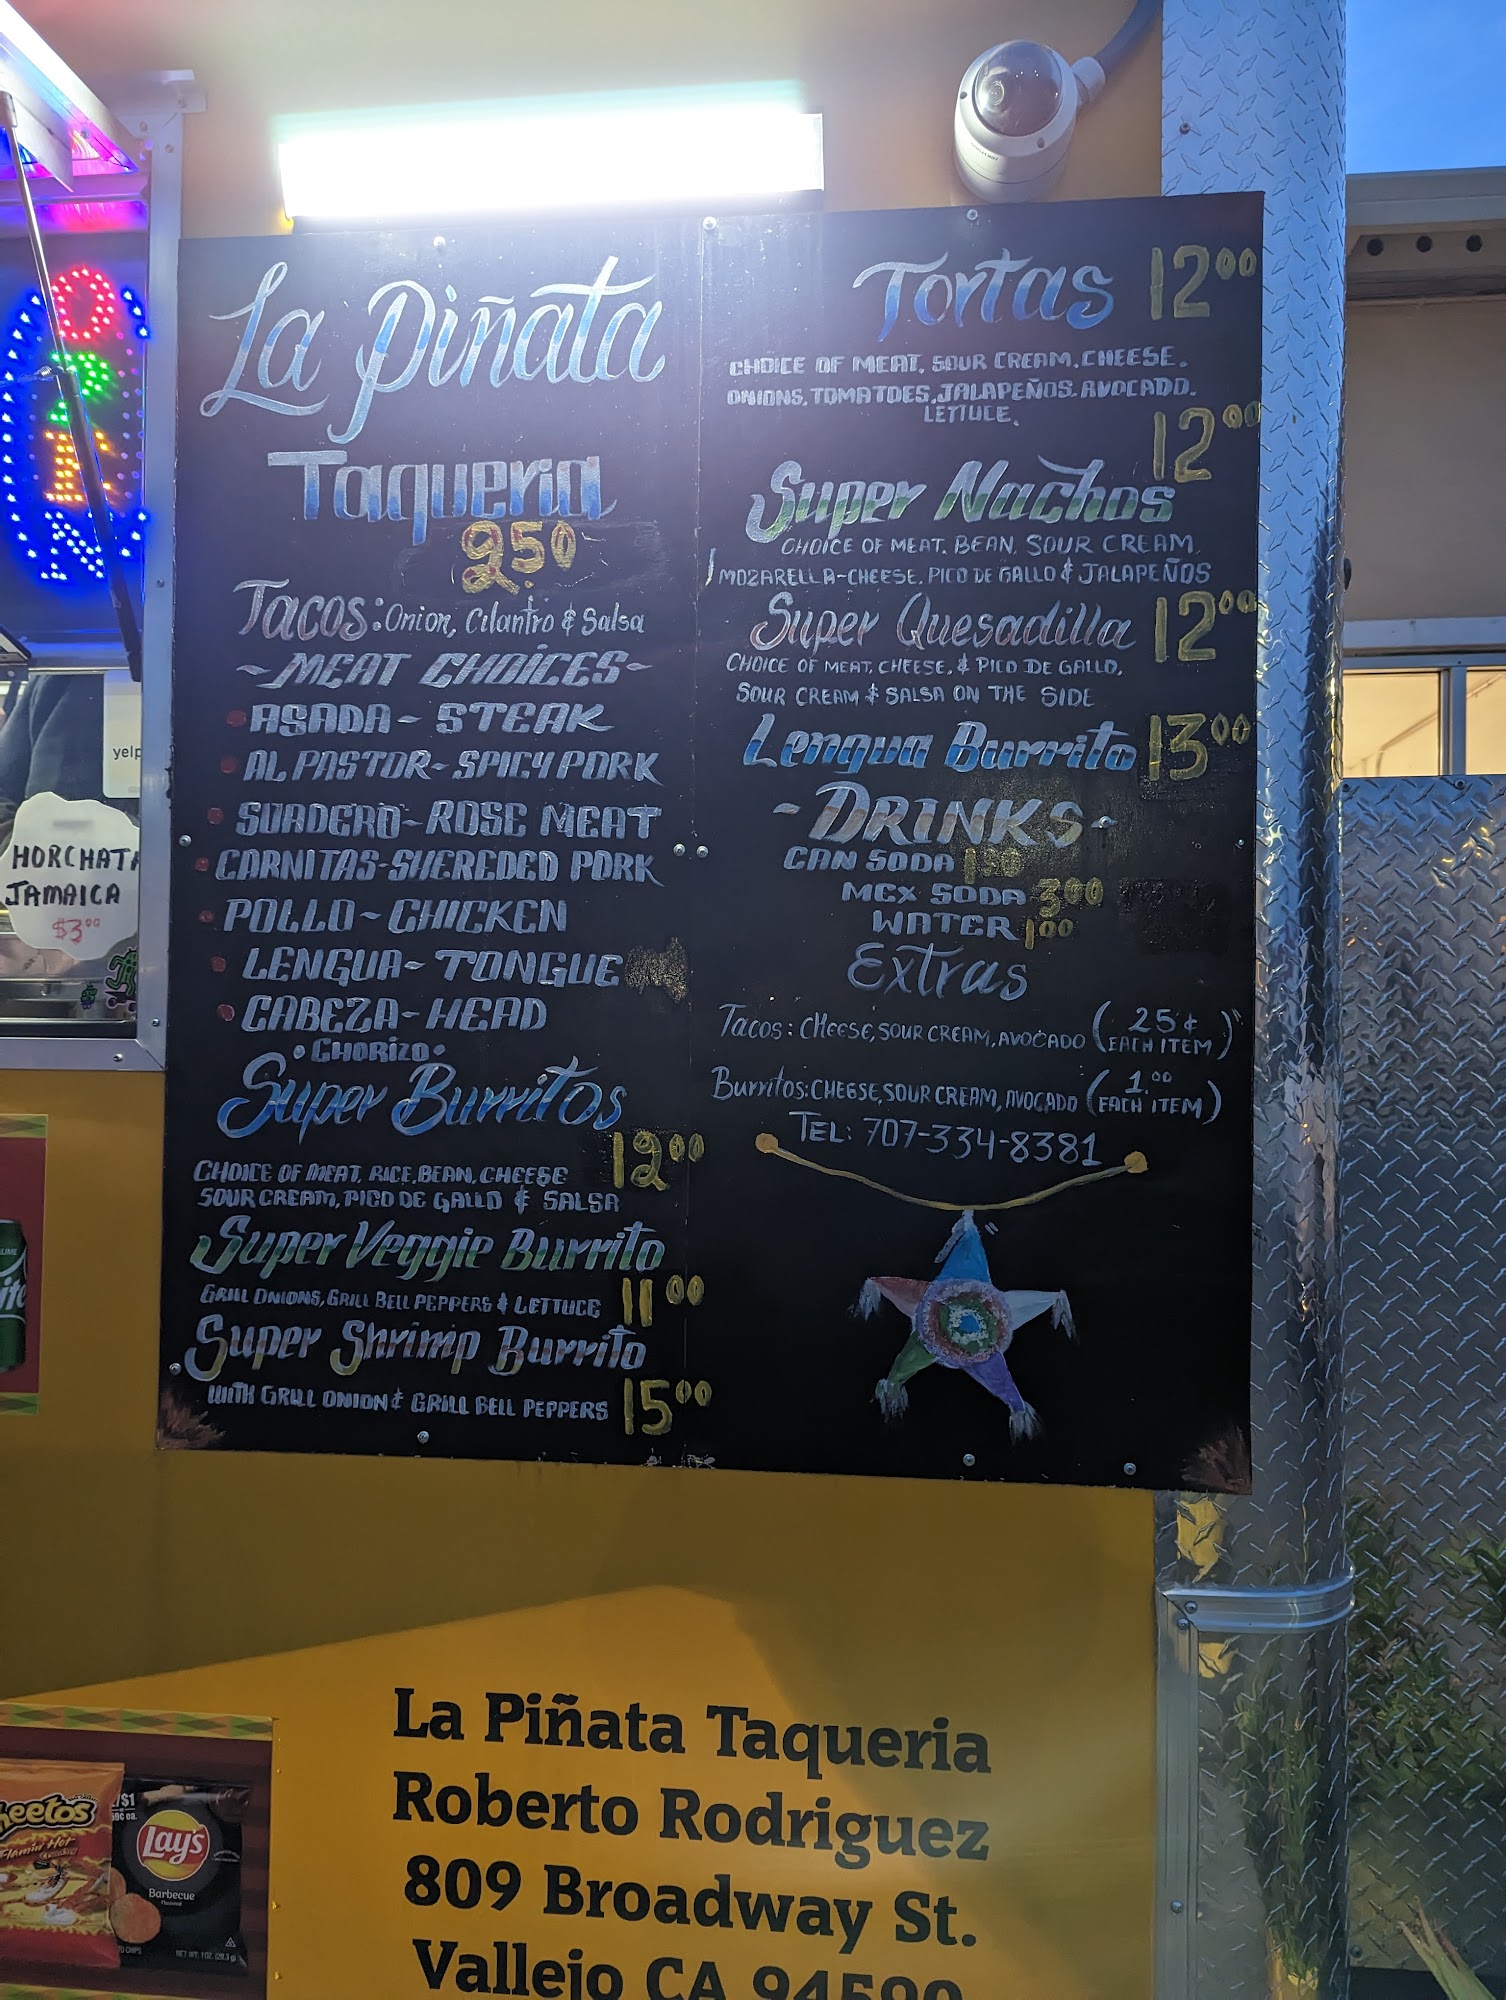 La Piñata
Taqueria
2.50
Tacos: Onion, Cilantro & Salsa
~MEAT CHOICES~
ASADA~ STEAK
AL PASTOR~ SPICY PORK
SUADERO~ROSE MEAT
CARNITAS-SHEREDED PORK
POLLO~ CHICKEN
LENGUA~ TONGUE
CABEZA~HEAD
•CHORIZO•
Super Burritos
12.00
CHOICE OF MEAT, RICE, BEAN, CHEESE
SOUR CREAM, PICO DE GALLO & SALSA
Super Veggie Burrito
GRILL ONIONS, GRILL BELL PEPPERS & LETTUCE 11.00
Super Shrimp Burrito
WITH GRILL ONION & GRILL BELL PEPPERS 15.00
Tortas 12.00
CHOICE OF MEAT, SOUR CREAM, CHEESE.
ONIONS, TOMATOES, JALAPEÑOS. AVOCADO.
LETTUCE.
12.00
Super Nachos
CHOICE OF MEAT. BEAN. SOUR CREAM,
MOZARELLA-CHEESE, PICO DE GALLO & JALAPEÑOS
Super Quesadilla 12.00
CHOICE OF MEAT, CHEESE, & PICO DE GALLO,
SOUR CREAM & SALSA ON THE SIDE
Lengua Burrito 13.00
~DRINKS~
CAN SODA
MEX SODA 3.00
WATER 1.00
Extras
Tacos: CHEESE, SOUR CREAM, AVOCADO (25¢ EACH ITEM)
Burritos: CHEESE, SOUR CREAM, AVOCADO (1.00 EACH ITEM)
TEL: 707-334-8381
OPEN
yelp
HORCHATA
JAMAICA
$3.00
La Piñata Taqueria
Roberto Rodriguez
809 Broadway St.
Vallejo CA 94590
heetos
Flamin' Hot
Lay's
Barbecue